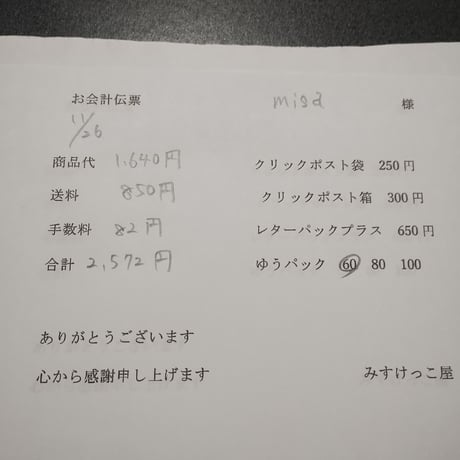 お会計伝票 misa 様
11/26
商品代 1,640円 クリックポスト袋 250円
送料 850円 クリックポスト箱 300円
手数料 82円 レターパックプラス 650円
合計 2,572円 ゆうパック 60 80 100
ありがとうございます
心から感謝申し上げます みすけっこ屋